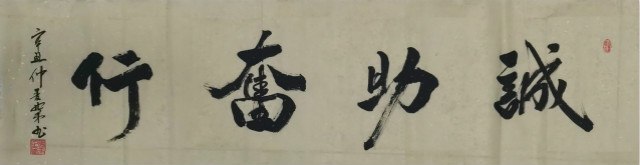 誠助奮行
辛丑仲夏